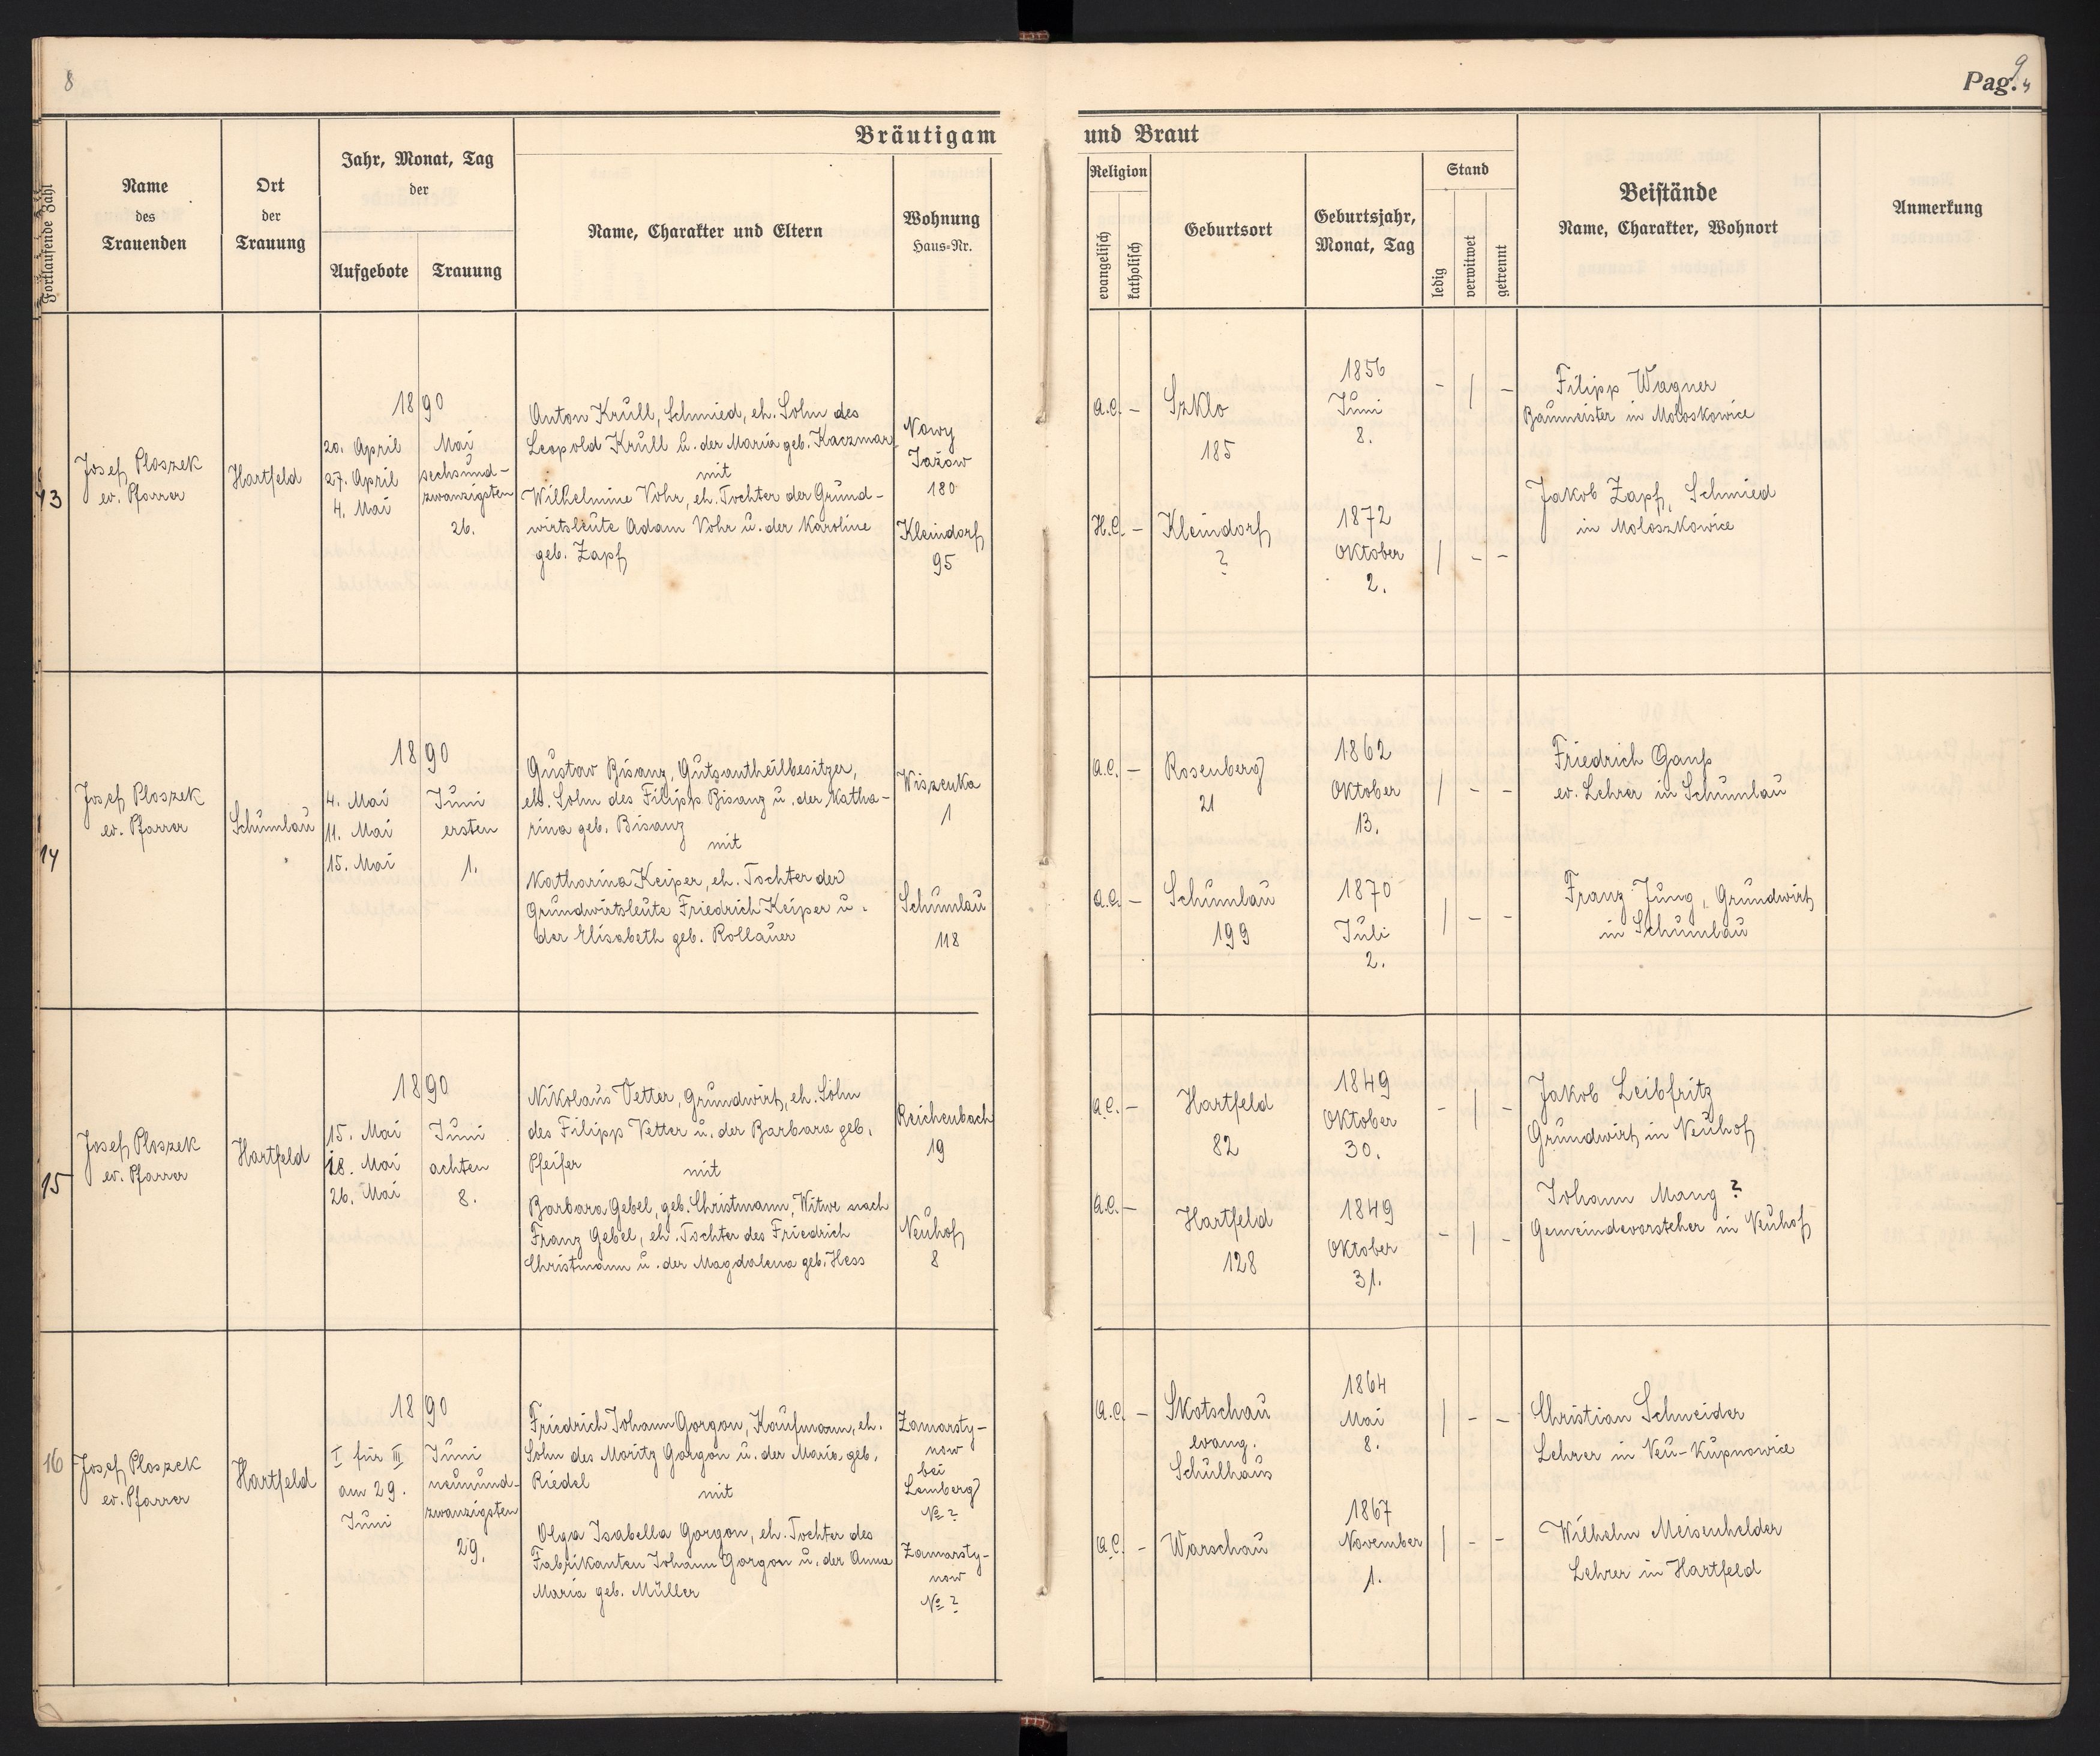 8
Pag. 9
Bräutigam und Braut
Fortlaufende Zahl
Name
des
Trauenden
Ort
der
Trauung
Jahr, Monat, Tag
der
Aufgebote
Trauung
Name, Charakter und Eltern
Wohnung
Haus-Nr.
Religion
evangelisch
katholisch
Geburtsort
Geburtsjahr,
Monat, Tag
Stand
ledig
verwitwet
getrennt
Beistände
Name, Charakter, Wohnort
Anmerkung
13
Josef Ploszek
ev. Pfarrer
Hartfeld
1890
20. April
27. April
4. Mai
Mai
sechsund-
zwanzigsten
26.
Anton Krull, Schmied, eh. Sohn des
Leopold Krull u. der Maria geb. Kaczmar
mit
Wilhelmine Vohr, eh. Tochter der Grund-
wirtsleute Adam Vohr u. der Karoline
geb. Zapf
Nowy
Jażow
180
Kleindorf
95
A.C. –
Szkło
185
1856
Juni
8.
– / –
H.C. –
Kleindorf
?
1872
Oktober
2.
/ – –
Filipp Wagner
Baumeister in Moloskowice
Jakob Zapf, Schmied
in Moloszkowice
14
Josef Ploszek
ev. Pfarrer
Schumlau
1890
4. Mai
11. Mai
15. Mai
Juni
ersten
1.
Gustav Bisanz, Gutsantheilbesitzer,
eh. Sohn des Filipp Bisanz u. der Katha-
rina geb. Bisanz
mit
Katharina Keiper, eh. Tochter der
Grundwirtsleute Friedrich Keiper u.
der Elisabeth geb. Rollauer
Wiszenka
1
Schumlau
118
A.C. –
Rosenberg
21
1862
Oktober
13.
/ – –
A.C. –
Schumlau
199
1870
Juli
2.
/ – –
Friedrich Ganß
ev. Lehrer in Schumlau
Franz Jung, Grundwirt
in Schumlau
15
Josef Ploszek
ev. Pfarrer
Hartfeld
1890
15. Mai
18. Mai
26. Mai
Juni
achten
8.
Nikolaus Vetter, Grundwirt, eh. Sohn
des Filipp Vetter u. der Barbara geb.
Pfeifer
mit
Barbara Gebel, geb. Christmann, Witwe nach
Franz Gebel, eh. Tochter des Friedrich
Christmann u. der Magdalena geb. Hess
Reichenbach
19
Neuhof
8
A.C. –
Hartfeld
82
1849
Oktober
30.
– / –
A.C. –
Hartfeld
128
1849
Oktober
31.
– / –
Jakob Leibfritz
Grundwirt in Neuhof
Johann Mang ?
Gemeindevorsteher in Neuhof
16
Josef Ploszek
ev. Pfarrer
Hartfeld
1890
I für III
am 29.
Juni
Juni
neunund-
zwanzigsten
29.
Friedrich Johann Gorgon, Kaufmann, eh.
Sohn des Moritz Gorgon u. der Maria, geb.
Riedel
mit
Olga Isabella Gorgon, eh. Tochter des
Fabrikanten Johann Gorgon u. der Anna
Maria geb. Müller
Zamarsty-
now
bei
Lemberg
№ ?
Zamarsty-
now
№ ?
A.C. –
Skotschau
evang.
Schulhaus
1864
Mai
8.
/ – –
A.C. –
Warschau
1867
November
1.
/ – –
Christian Schneider
Lehrer in Neu-Kupnowice
Wilhelm Meisenhelder
Lehrer in Hartfeld